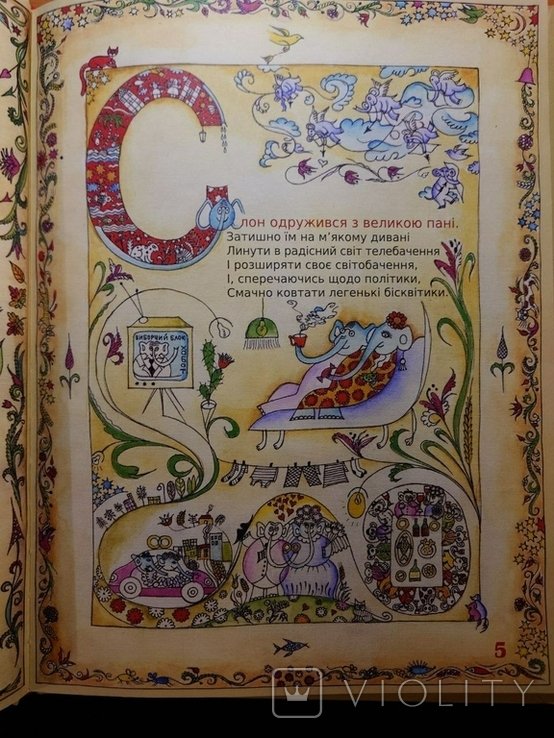 Слон одружився з великою пані.
Затишно їм на м’якому дивані
Линути в радісний світ телебачення
І розширяти своє світобачення,
І, сперечаючись щодо політики,
Смачно ковтати легенькі бісквітики.
ВИБОРЧИЙ БЛОК
5
VIOLITY